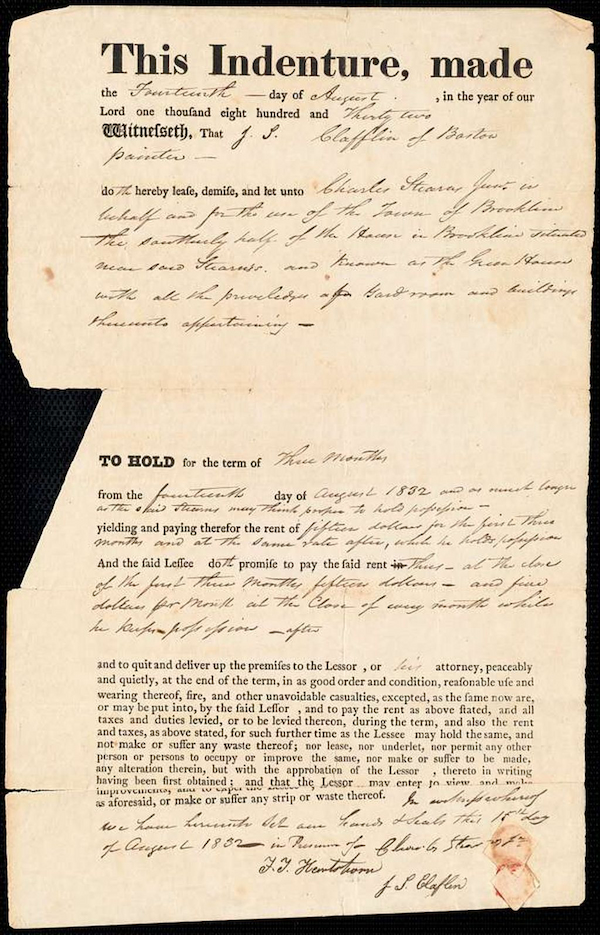 This Indenture, made
the Fourteenth — day of August , in the year of our
Lord one thouſand eight hundred and Thirty two
Witneſſeth, That J. S. Clafflin of Boston
painter —
doth hereby leaſe, demiſe, and let unto Charles Stearns Junr. in
behalf and for the use of the Town of Brookline
the southerly half of the House in Brookline situated
near said Stearns's. and known as the Green House
with all the priveledges of Yard room and buildings
thereunto appertaining —
TO HOLD for the term of Three Months
from the fourteenth day of August 1832 and as much longer
as the said Stearns may think proper to hold poſseſsion —
yielding and paying therefor the rent of fifteen dollars for the first three
months and at the same rate after, while he holds poſseſsion
And the ſaid Leſſee doth promiſe to pay the ſaid rent in thus — at the close
of the first three Months fifteen dollars — and five
dollars per Month at the Close of every month while
he keeps poſseſsion — after
and to quit and deliver up the premiſes to the Leſſor , or his attorney, peaceably
and quietly, at the end of the term, in as good order and condition, reaſonable uſe and
wearing thereof, fire, and other unavoidable caſualties, excepted, as the ſame now are,
or may be put into, by the ſaid Leſſor , and to pay the rent as above ſtated, and all
taxes and duties levied, or to be levied thereon, during the term, and also the rent
and taxes, as above stated, for such further time as the Lessee may hold the same, and
not make or suffer any waste thereof; nor lease, nor underlet, nor permit any other
person or persons to occupy or improve the same, nor make or suffer to be made,
any alteration therein, but with the approbation of the Lessor , thereto in writing
having been first obtained; and that the Lessor may enter to view, and make
improvements, and to expel the Lessee,
as aforesaid, or make or suffer any strip or waste thereof. In witness whereof
we have hereunto Set our hands & Seals this 15th day
of August 1832 — in Presence of Charles Stearns Jr
J. S. Clafflin